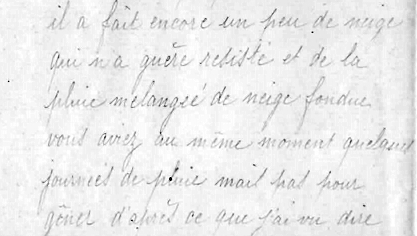 il a fait encore un peu de neige
qui n'a guère resisté et de la
pluie melangeé de neige fondue
vous aviez au même moment quelques
journeés de pluie mail pas pour
gêner d'après ce que j'ai vu dire